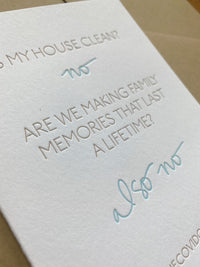 MY HOUSE CLEAN?
no
ARE WE MAKING FAMILY
MEMORIES THAT LAST
A LIFETIME?
also no